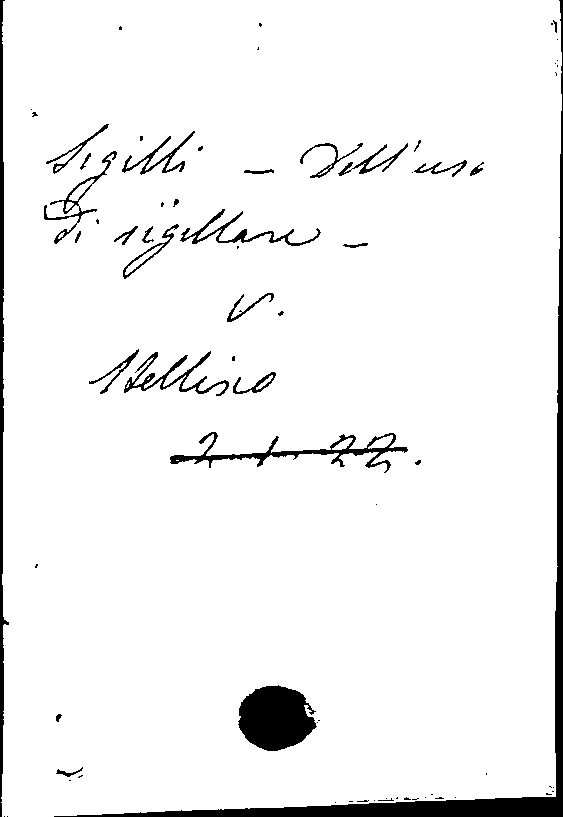 Sigilli - Dell'uso
di sigillare -
V.
Stellisio
2. 1. 22.